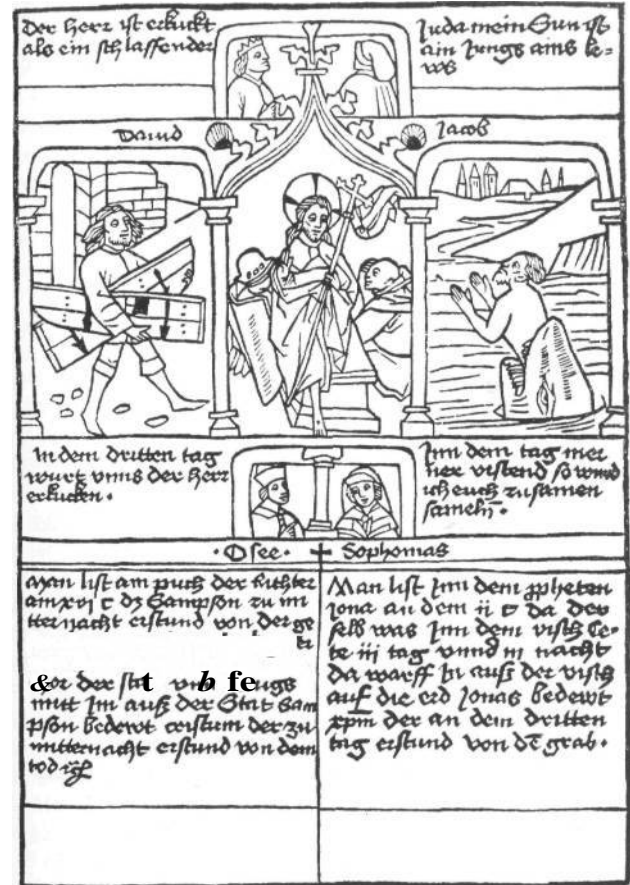 Der herr ist erkuckt
als ein schlaffender
Juda mein Sun ist
ain Jungs ains le-
ws
Dauid
Jacob
In dem dritten tag
wurt vnns der herr
erkucken.
Inn dem tag mei
ner vistend so wurd
ich euch zu samen
sameln.
Osee. Sophonias
Man list am puch der Richter
am xvi c dz Sampson zu mi
tternacht erstund von der ge
tor der stat vnb fe ugs
mitt Im auß der Stat Sam
pson bedewt cristum der zu
mitternacht erstund von dem
tod
Man list Inn dem ꝓpheten
Jona an dem ii c da der
selb was Inn dem visch Ce-
te iii tag vnnd iii nacht
da warff In auß der visch
auf die erd Jonas bedewt
xpm̄ der an dem dritten
tag erstund von dē grab.